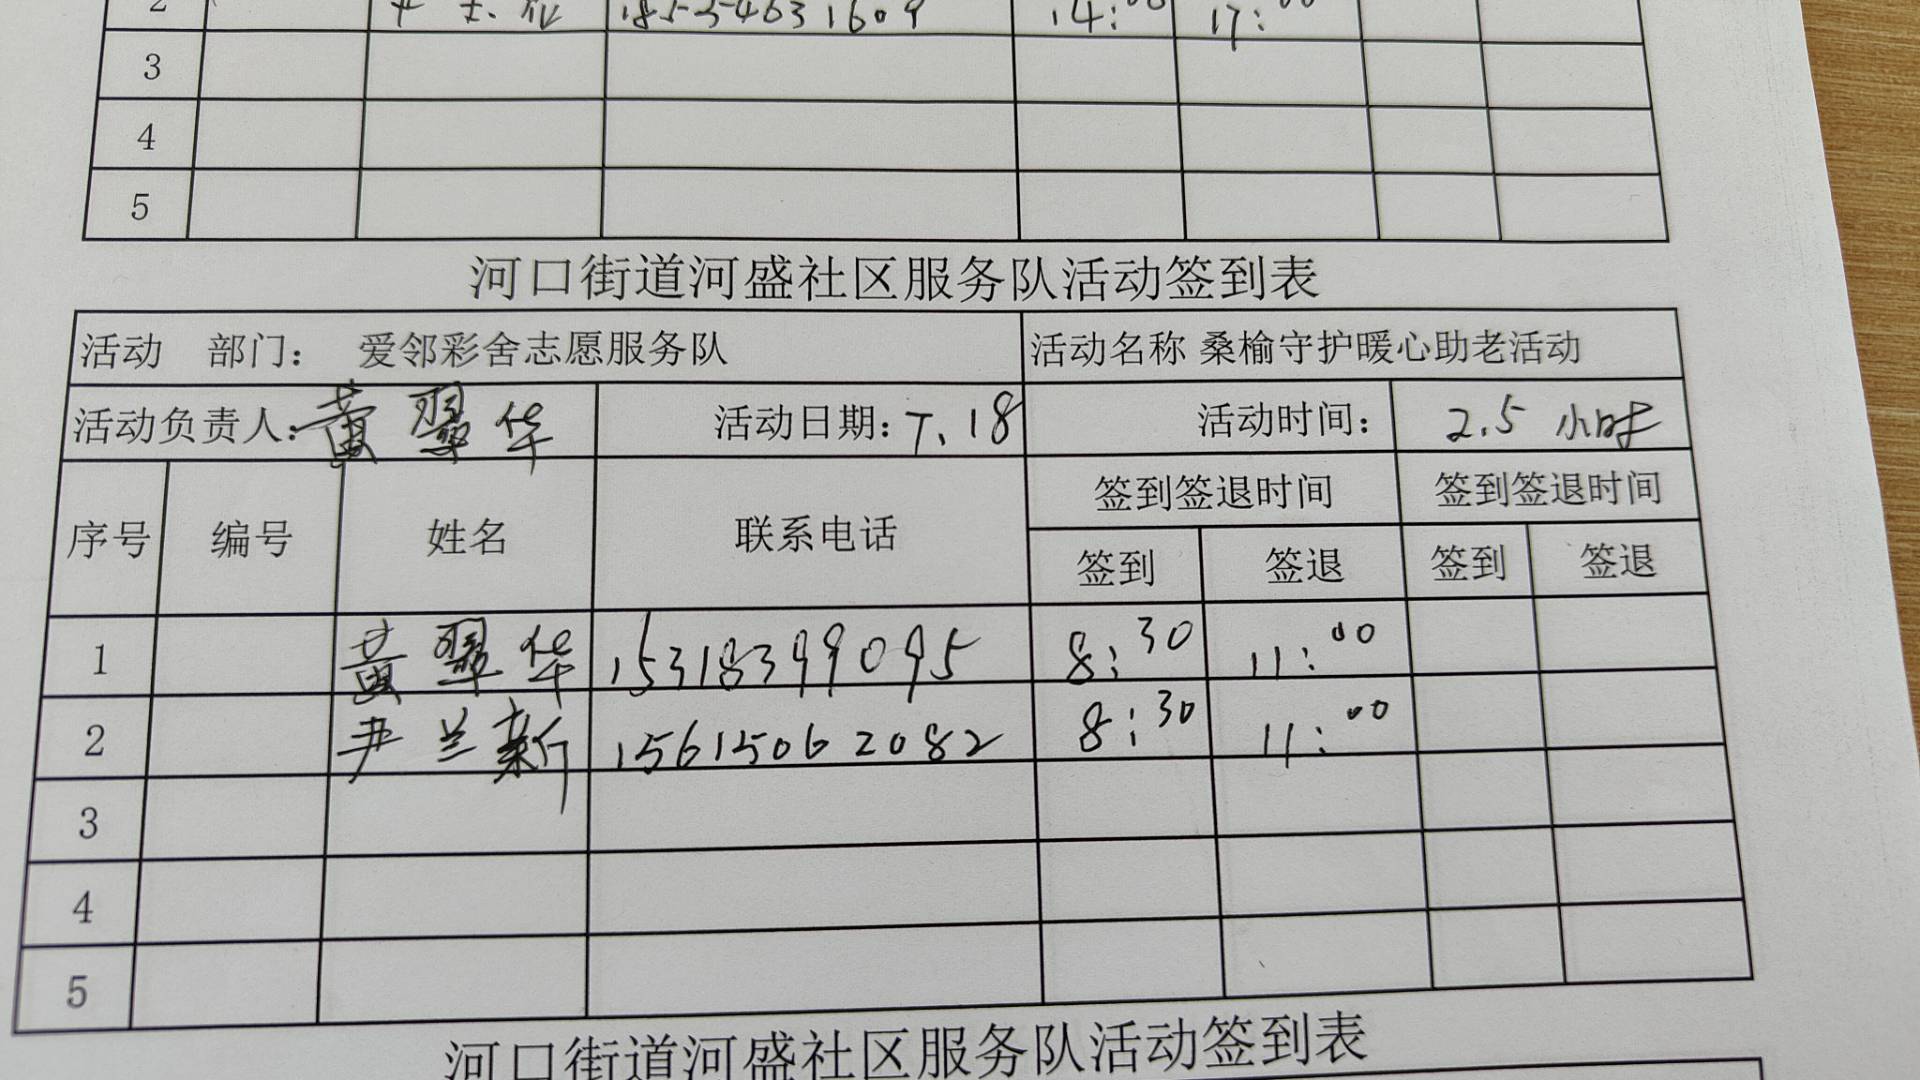 2 18554631609 14:00 17:00
3
4
5
河口街道河盛社区服务队活动签到表
活动 部门： 爱邻彩舍志愿服务队 活动名称 桑榆守护暖心助老活动
活动负责人：黄翠华 活动日期：7.18 活动时间： 2.5 小时
序号 编号 姓名 联系电话 签到签退时间 签到签退时间
签到 签退 签到 签退
1 黄翠华 15318399095 8:30 11:00
2 尹兰新 15615062082 8:30 11:00
3
4
5
河口街道河盛社区服务队活动签到表